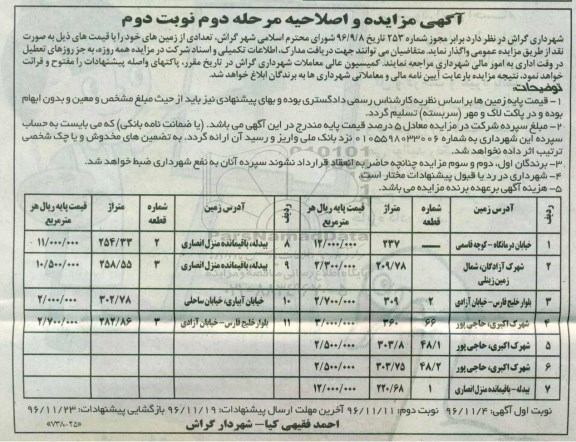 آگهی مزایده و اصلاحیه مرحله دوم نوبت دوم
شهرداری گراش در نظر دارد برابر مجوز شماره ۲۵۳ تاریخ ۹۶/۹/۸ شورای محترم اسلامی شهر گراش، تعدادی از زمین های خود را با قیمت های ذیل به صورت
نقد از طریق مزایده عمومی واگذار نماید. متقاضیان می توانند جهت دریافت مدارک، اطلاعات تکمیلی و اسناد شرکت در مزایده همه روزه، به جز روزهای تعطیل
در وقت اداری به امور مالی شهرداری مراجعه نمایند. کمیسیون عالی معاملات شهرداری گراش در تاریخ مقرر، پاکتهای واصله پیشنهادات را مفتوح و قرائت
خواهد نمود، نتیجه مزایده بارعایت آیین نامه مالی و معاملاتی شهرداری ها به برندگان ابلاغ خواهد شد.
توضیحات:
۱- قیمت پایه زمین ها براساس نظریه کارشناس رسمی دادگستری بوده و بهای پیشنهادی نیز باید از حیث مبلغ مشخص و معین و بدون ابهام
بوده و در پاکت لاک و مهر (سربسته) تسلیم گردد.
۲- مبلغ سپرده شرکت در مزایده معادل ۵ درصد قیمت پایه مندرج در این آگهی می باشد. (یا ضمانت نامه بانکی) که می بایست به حساب
سپرده این شهرداری به شماره ۰۱۰۵۵۹۸۰۳۳۰۰۶ نزد بانک ملی واریز و رسید آن ارائه گردد. به تضمین های مخدوش و یا چک شخصی
ترتیب اثر داده نخواهد شد.
۳- برندگان اول، دوم و سوم مزایده چنانچه حاضر به انعقاد قرارداد نشوند سپرده آنان به نفع شهرداری ضبط خواهد شد.
۴- شهرداری در رد یا قبول پیشنهادات مختار است.
۵- هزینه آگهی برعهده برنده مزایده می باشد.
ردیف آدرس زمین شماره قطعه متراژ قیمت پایه ریال هر مترمربع ردیف آدرس زمین شماره قطعه متراژ قیمت پایه ریال هر مترمربع
۱ خیابان درمانگاه - کوچه قاسمی — ۲۳۷ ۱۲/۰۰۰/۰۰۰ ۸ بیدله، باقیمانده منزل انصاری ۲ ۲۵۴/۳۳ ۱۱/۰۰۰/۰۰۰
۲ شهرک آزادگان، شمال زمین زینلی ۲۰۹/۷۸ ۳/۳۰۰/۰۰۰ ۹ بیدله، باقیمانده منزل انصاری ۳ ۲۵۸/۵۵ ۱۰/۵۰۰/۰۰۰
۳ بلوار خلیج فارس - خیابان آزادی ۲ ۳۰۹ ۲/۷۰۰/۰۰۰ ۱۰ خیابان آبیاری، خیابان ساحلی ۳۰۲/۷۸ ۲/۰۰۰/۰۰۰
۴ شهرک اکبری، حاجی پور ۶۶ ۳۶۰ ۳/۰۰۰/۰۰۰ ۱۱ بلوار خلیج فارس - خیابان آزادی ۳ ۲۸۲/۸۶ ۲/۷۰۰/۰۰۰
۵ شهرک اکبری، حاجی پور ۴۸/۱ ۳۰۳/۸ ۲/۵۰۰/۰۰۰
۶ شهرک اکبری، حاجی پور ۴۸/۲ ۳۰۳/۷۵ ۲/۵۰۰/۰۰۰
۷ بیدله - باقیمانده منزل انصاری ۱ ۲۲۰/۶۸ ۱۲/۰۰۰/۰۰۰
نوبت اول آگهی: ۹۶/۱۱/۴ نوبت دوم: ۹۶/۱۱/۱۱ آخرین مهلت ارسال پیشنهادات: ۹۶/۱۱/۱۹ بازگشایی پیشنهادات: ۹۶/۱۱/۲۳
احمد فقیهی کیا - شهردار گراش
«۷۳۸۰۲۵»
ParsNamadData